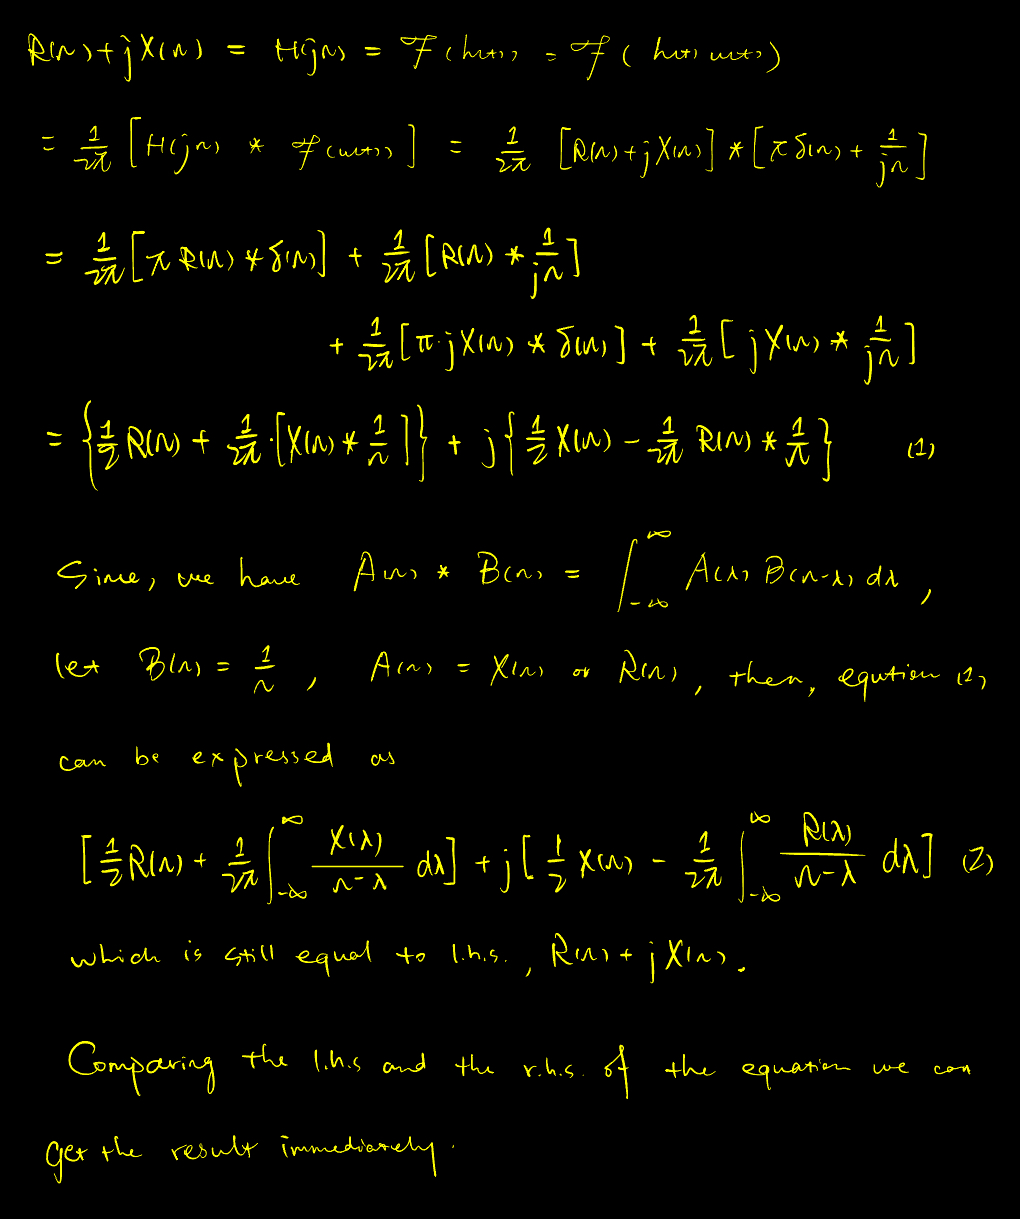 R(ω)+jX(ω) = H(jω) = ℱ(h(t)) = ℱ( h(t) u(t) )
= 1/2π [H(jω) * ℱ(u(t))] = 1/2π [R(ω)+jX(ω)] * [πδ(ω) + 1/jω]
= 1/2π [π R(ω) * δ(ω)] + 1/2π [R(ω) * 1/jω]
+ 1/2π [π·jX(ω) * δ(ω)] + 1/2π [jX(ω) * 1/jω]
= {1/2 R(ω) + 1/2π·[X(ω) * 1/ω]} + j{1/2 X(ω) - 1/2π R(ω) * 1/ω} (1)
Since, we have A(ω) * B(ω) = ∫_{-∞}^{∞} A(λ) B(ω-λ) dλ,
let B(ω) = 1/ω, A(ω) = X(ω) or R(ω), then, equtien (1)
can be expressed as
[1/2 R(ω) + 1/2π ∫_{-∞}^{∞} X(λ)/ω-λ dλ] + j[1/2 X(ω) - 1/2π ∫_{-∞}^{∞} R(λ)/ω-λ dλ] (2)
which is still equal to l.h.s., R(ω)+jX(ω).
Comparing the l.h.s and the r.h.s. of the equation we can
get the result immediately.